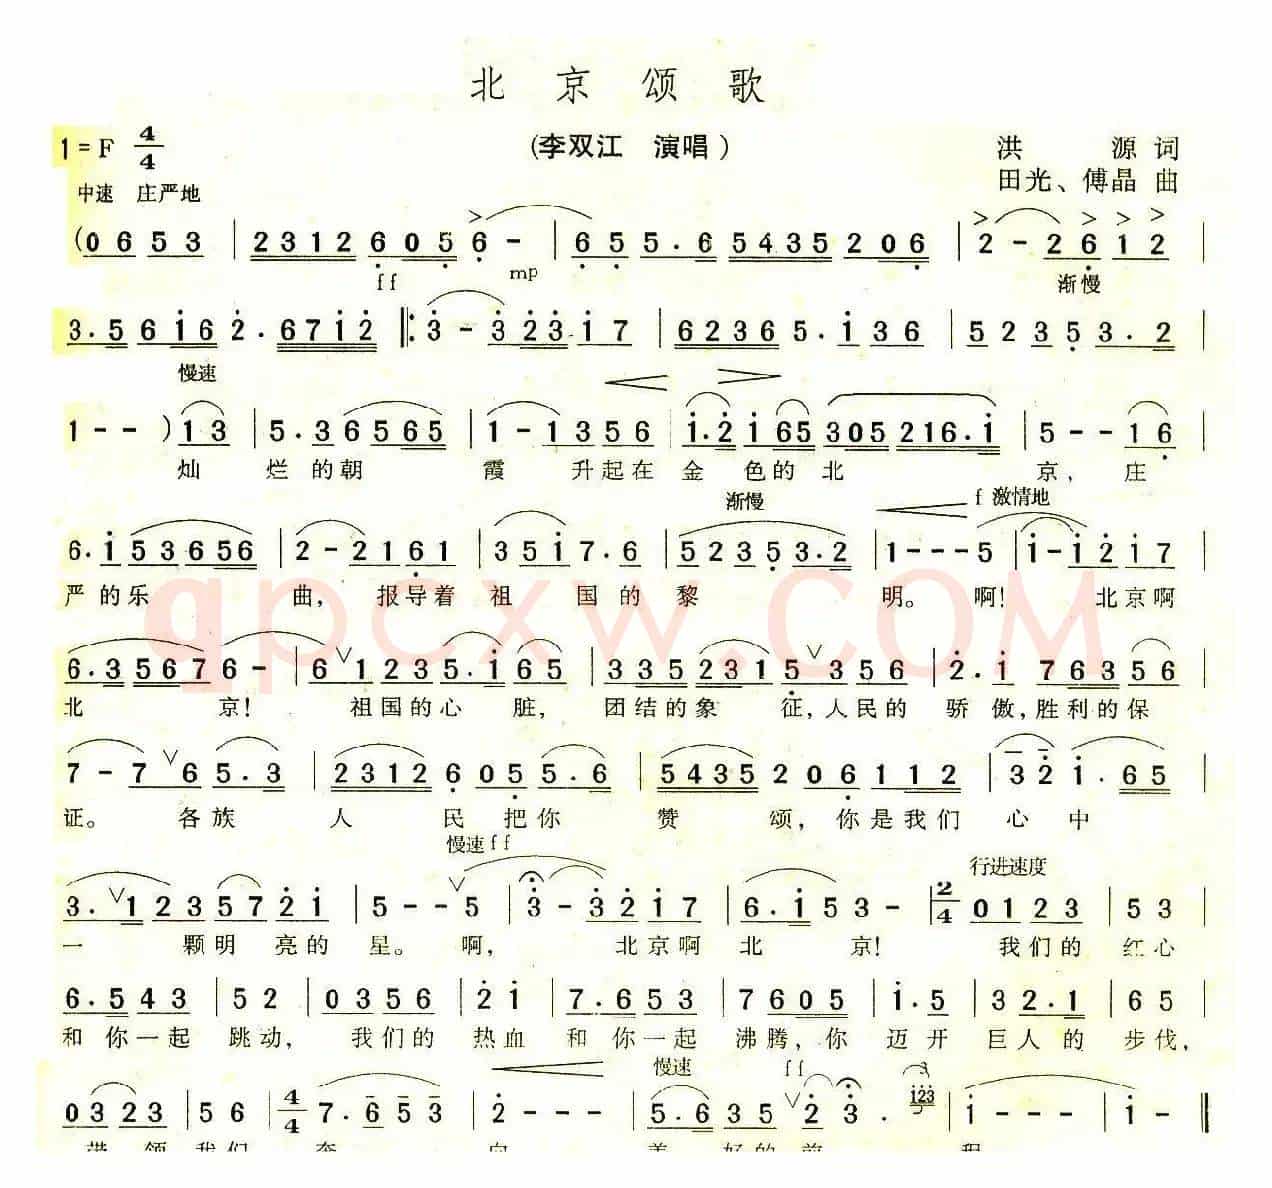 北京颂歌
(李双江 演唱)
1=F 4/4
洪 源 词
中速 庄严地
田光、傅晶 曲
(0 6 5 3 | 2 3 1 2 6 0 5 6 - | 6 5 5 . 6 5 4 3 5 2 0 6 | 2 - 2 6 1 2 |
ff mp 渐慢
3 . 5 6 i 6 2 . 6 7 i 2 ‖: 3 - 3 2 3 i 7 | 6 2 3 6 5 . i 3 6 | 5 2 3 5 3 . 2 |
慢速
1 - - ) 1 3 | 5 . 3 6 5 6 5 | 1 - 1 3 5 6 | i . 2 i 6 5 3 0 5 2 1 6 . i | 5 - - 1 6 |
灿 烂 的 朝 霞 升起在 金 色的 北 京, 庄
渐慢 f 激情地
6 . i 5 3 6 5 6 | 2 - 2 1 6 1 | 3 5 i 7 . 6 | 5 2 3 5 3 . 2 | 1 - - - 5 | i - i 2 i 7 |
严 的 乐 曲, 报导着 祖 国 的 黎 明。 啊! 北京啊
qpcxw.COM
6 . 3 5 6 7 6 - | 6 ∨ 1 2 3 5 . i 6 5 | 3 3 5 2 3 1 5 ∨ 3 5 6 | 2 . i 7 6 3 5 6 |
北 京! 祖国的心 脏, 团结的象 征,人民的 骄 傲,胜利的保
7 - 7 ∨ 6 5 . 3 | 2 3 1 2 6 0 5 5 . 6 | 5 4 3 5 2 0 6 1 1 2 | 3 2 i . 6 5 |
证。 各 族 人 民 把 你 赞 颂, 你是我们 心 中
慢速 ff
行进速度
3 . ∨ 1 2 3 5 7 2 i | 5 - - ∨ 5 | 3 - 3 2 i 7 | 6 . i 5 3 - | 2/4 0 1 2 3 | 5 3 |
一 颗明 亮的 星。 啊, 北京啊 北 京! 我们的 红心
6 . 5 4 3 | 5 2 | 0 3 5 6 | 2 i | 7 . 6 5 3 | 7 6 0 5 | i . 5 | 3 2 . 1 | 6 5 |
和 你一起 跳动, 我们的 热血 和 你一起 沸腾, 你 迈开 巨人的 步伐,
慢速 ff
0 3 2 3 | 5 6 | 4/4 7 . 6 5 3 | 2 - - - | 5 . 6 3 5 ∨ 2 3 . i23 | i - - - | i - ‖
带 领 我们 奔 向 美 好的 前 程